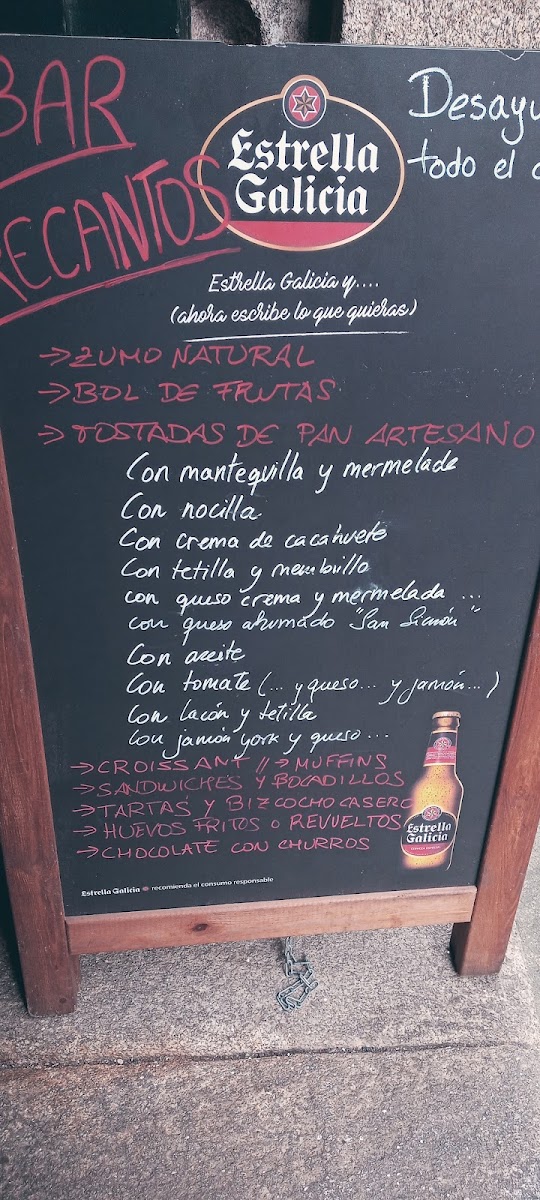 BAR
RECANTOS
Estrella
Galicia
Desayu
todo el d
Estrella Galicia y....
(ahora escribe lo que quieras)
→ZUMO NATURAL
→BOL DE FRUTAS
→TOSTADAS DE PAN ARTESANO
Con mantequilla y mermelada
Con nocilla
Con crema de cacahuete
Con tetilla y membrillo
con queso crema y mermelada ...
con queso ahumado "San Simón"
Con aceite
Con tomate (... y queso... y jamón...)
Con lacón y tetilla
Con jamón york y queso...
→CROISSANT //→MUFFINS
→SANDWICHES Y BOCADILLOS
→TARTAS Y BIZCOCHO CASERO
→HUEVOS FRITOS o REVUELTOS
→CHOCOLATE CON CHURROS
Estrella
Galicia
CERVEZA ESPECIAL
Estrella Galicia recomienda el consumo responsable